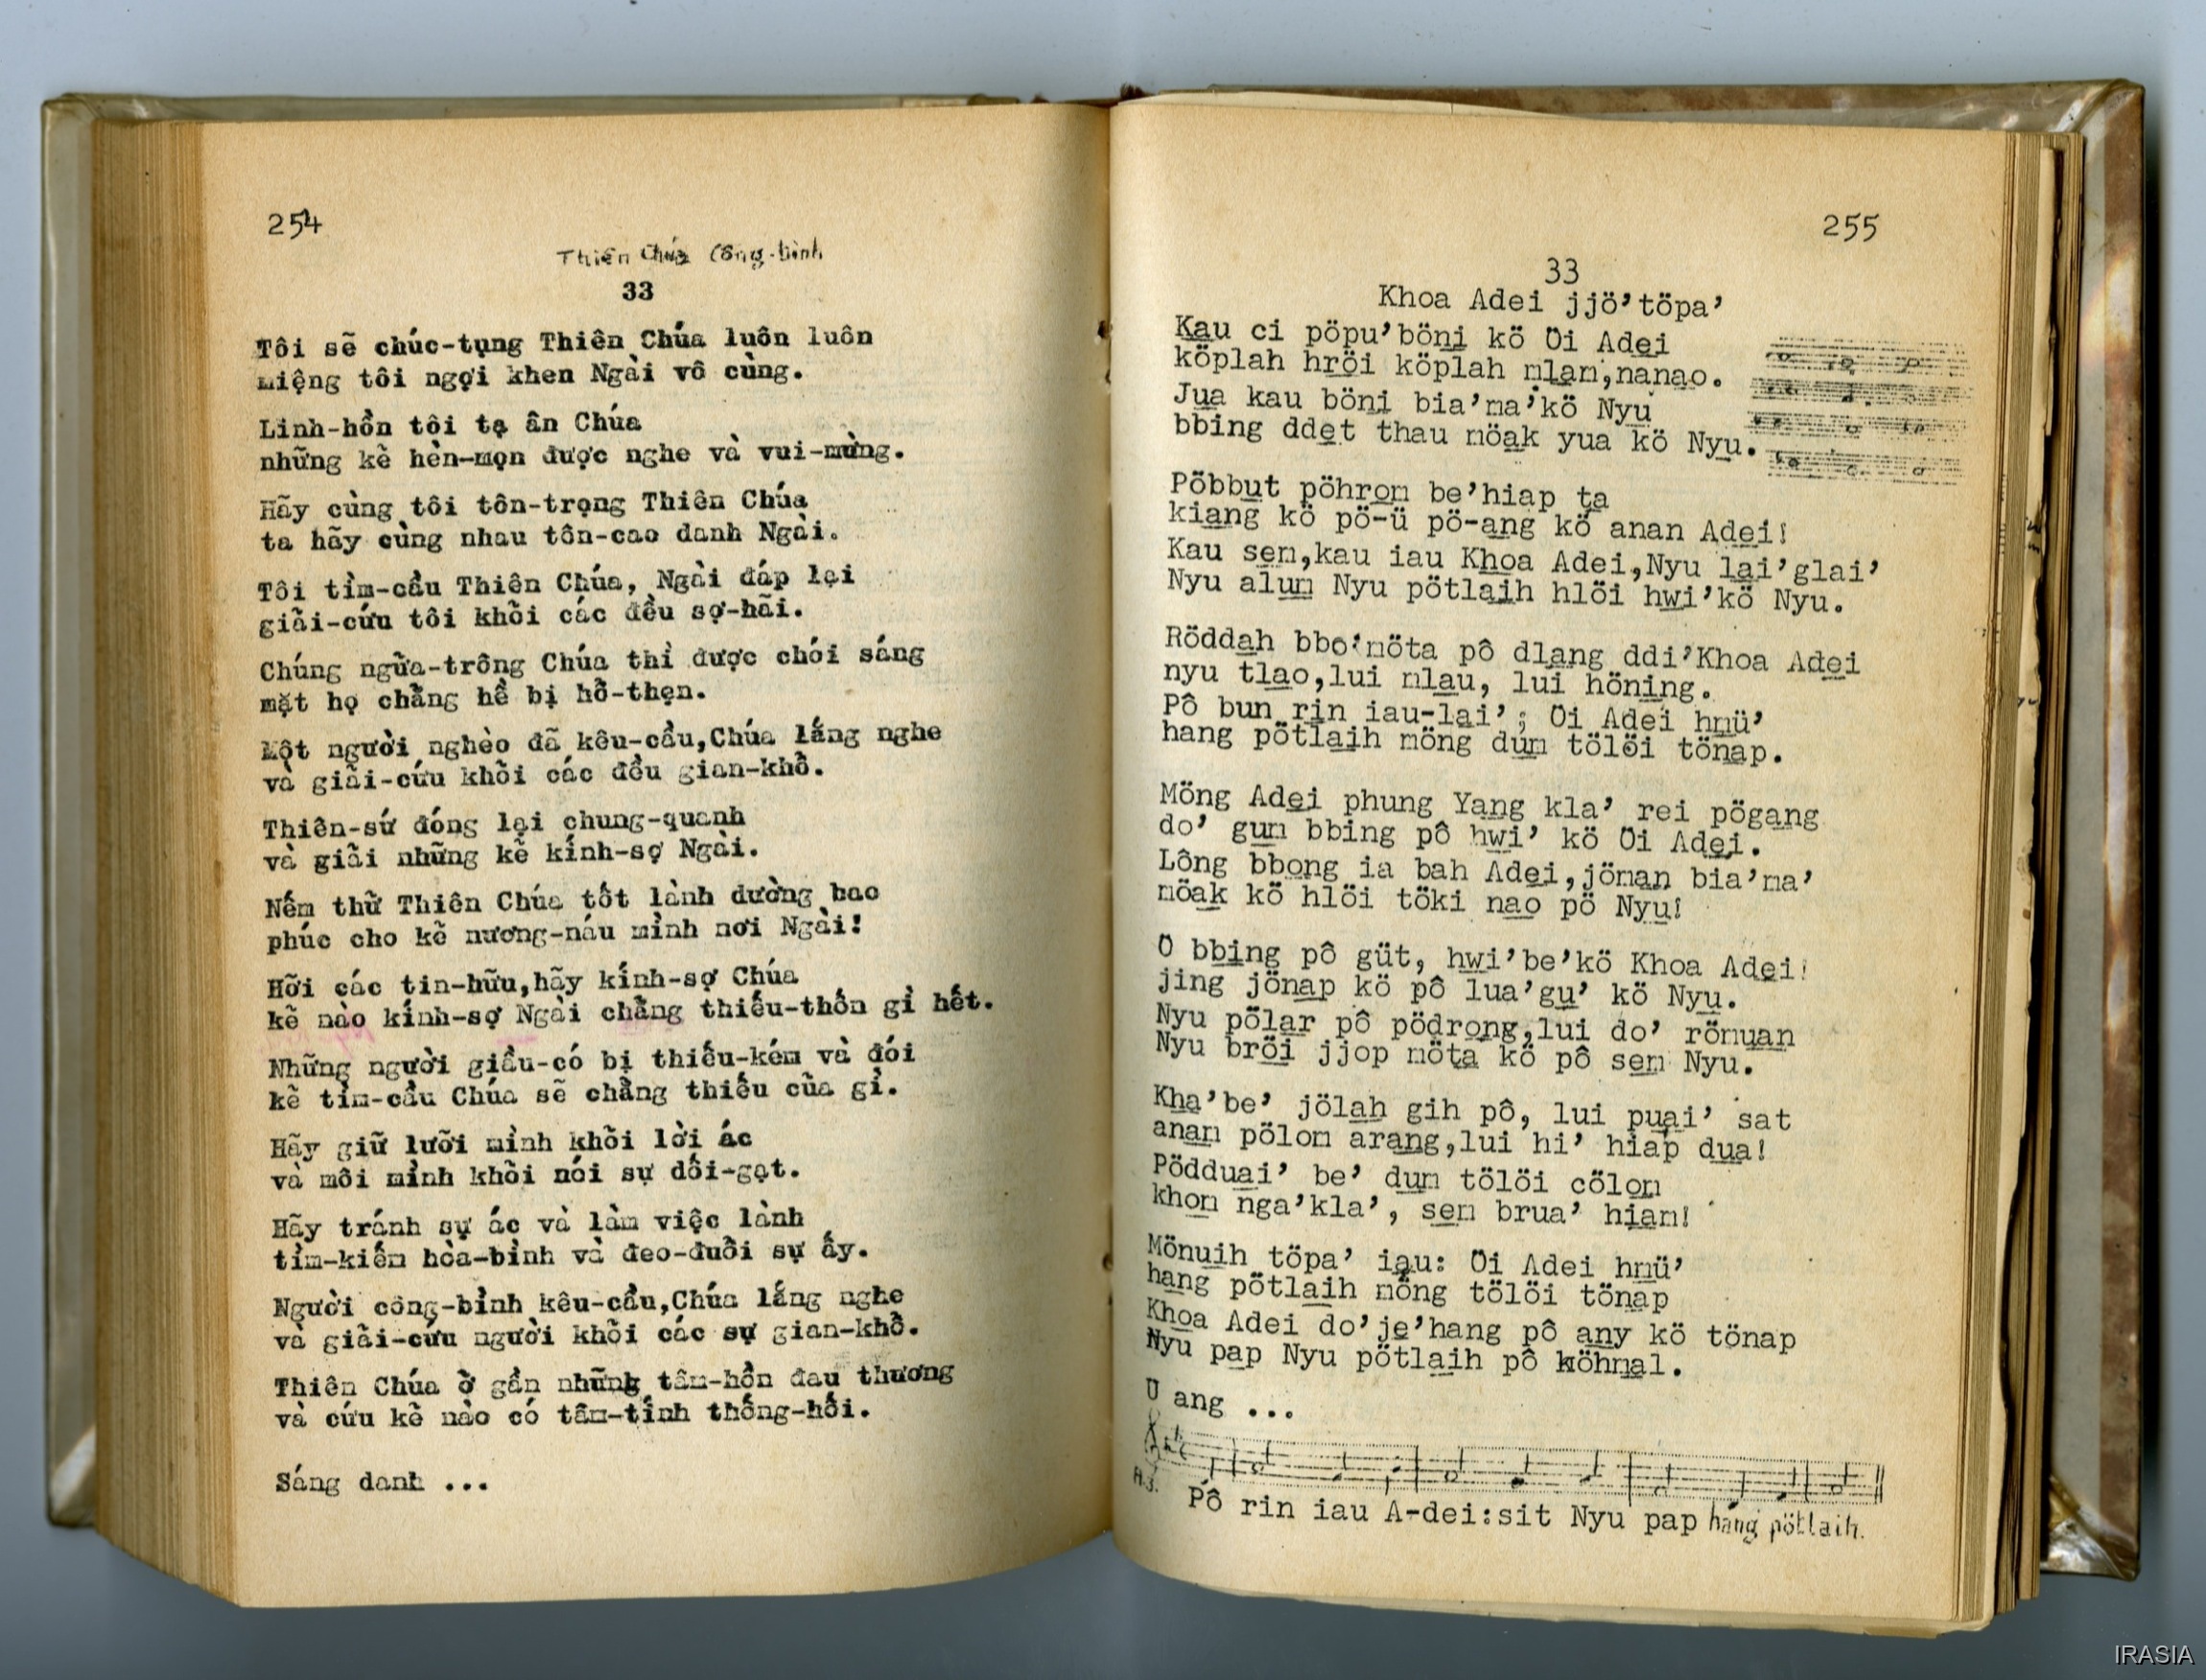 254
Thiên Chúa Công-bình
33
Tôi sẽ chúc-tụng Thiên Chúa luôn luôn
miệng tôi ngợi khen Ngài vô cùng.
Linh-hồn tôi tạ ân Chúa
những kẽ hèn-mọn được nghe và vui-mừng.
Hãy cùng tôi tôn-trọng Thiên Chúa
ta hãy cùng nhau tôn-cao danh Ngài.
Tôi tìm-cầu Thiên Chúa, Ngài đáp lại
giãi-cứu tôi khõi các đều sợ-hãi.
Chúng ngữa-trông Chúa thì được chói sáng
mặt họ chẵng hề bị hỗ-thẹn.
Một người nghèo đã kêu-cầu,Chúa lắng nghe
và giãi-cứu khõi các đều gian-khỗ.
Thiên-sứ đóng lại chung-quanh
và giãi những kẽ kính-sợ Ngài.
Nếm thữ Thiên Chúa tốt lành dường bao
phúc cho kẽ nương-náu mình nơi Ngài!
Hỡi các tin-hữu,hãy kính-sợ Chúa
kẽ nào kính-sợ Ngài chẵng thiếu-thốn gì hết.
Những người giầu-có bị thiếu-kém và đói
kẽ tìm-cầu Chúa sẽ chẵng thiếu cũa gì.
Hãy giữ lưỡi mình khõi lời ác
và môi mình khõi nói sự dối-gạt.
Hãy tránh sự ác và làm việc lành
tìm-kiếm hòa-bình và đeo-đuỗi sự ấy.
Người công-bình kêu-cầu,Chúa lắng nghe
và giãi-cứu người khõi các sự gian-khỗ.
Thiên Chúa ỡ gần những tâm-hồn đau thương
và cứu kẽ nào có tâm-tính thống-hối.
Sáng danh ...
255
33
Khoa Adei jjö’töpa’
Kau ci pöpu’böni kö Oi Adei
köplah hröi köplah mlam,nanao.
Jua kau böni bia’ma’kö Nyu
bbing ddet thau möak yua kö Nyu.
Pöbbut pöhrom be’hiap ta
kiang kö pö-ü pö-ang kö anan Adei!
Kau sem,kau iau Khoa Adei,Nyu lai’glai’
Nyu alum Nyu pötlaih hlöi hwi’kö Nyu.
Röddah bbo’möta pô dlang ddi’Khoa Adei
nyu tlao,lui mlau, lui höning.
Pô bun rin iau-lai’; Oi Adei hmü’
hang pötlaih möng dum tölöi tönap.
Möng Adei phung Yang kla’ rei pögang
do’ gum bbing pô hwi’ kö Oi Adei.
Lông bbong ia bah Adei,jöman bia’ma’
möak kö hlöi töki nao pö Nyu!
O bbing pô güt, hwi’be’kö Khoa Adei!
jing jönap kö pô lua’gu’ kö Nyu.
Nyu pölar pô pödrong,lui do’ römuan
Nyu bröi jjop möta kö pô sem Nyu.
Kha’be’ jölah gih pô, lui puai’ sat
anam pölom arang,lui hi’ hiap dua!
Pödduai’ be’ dum tölöi cölom
khom nga’kla’, sem brua’ hiam!
Mönuih töpa’ iau: Oi Adei hmü’
hang pötlaih möng tölöi tönap
Khoa Adei do’je’hang pô any kö tönap
Nyu pap Nyu pötlaih pô köhmal.
U ang ...
Pô rin iau A-dei:sit Nyu pap hang pötlaih.
IRASIA